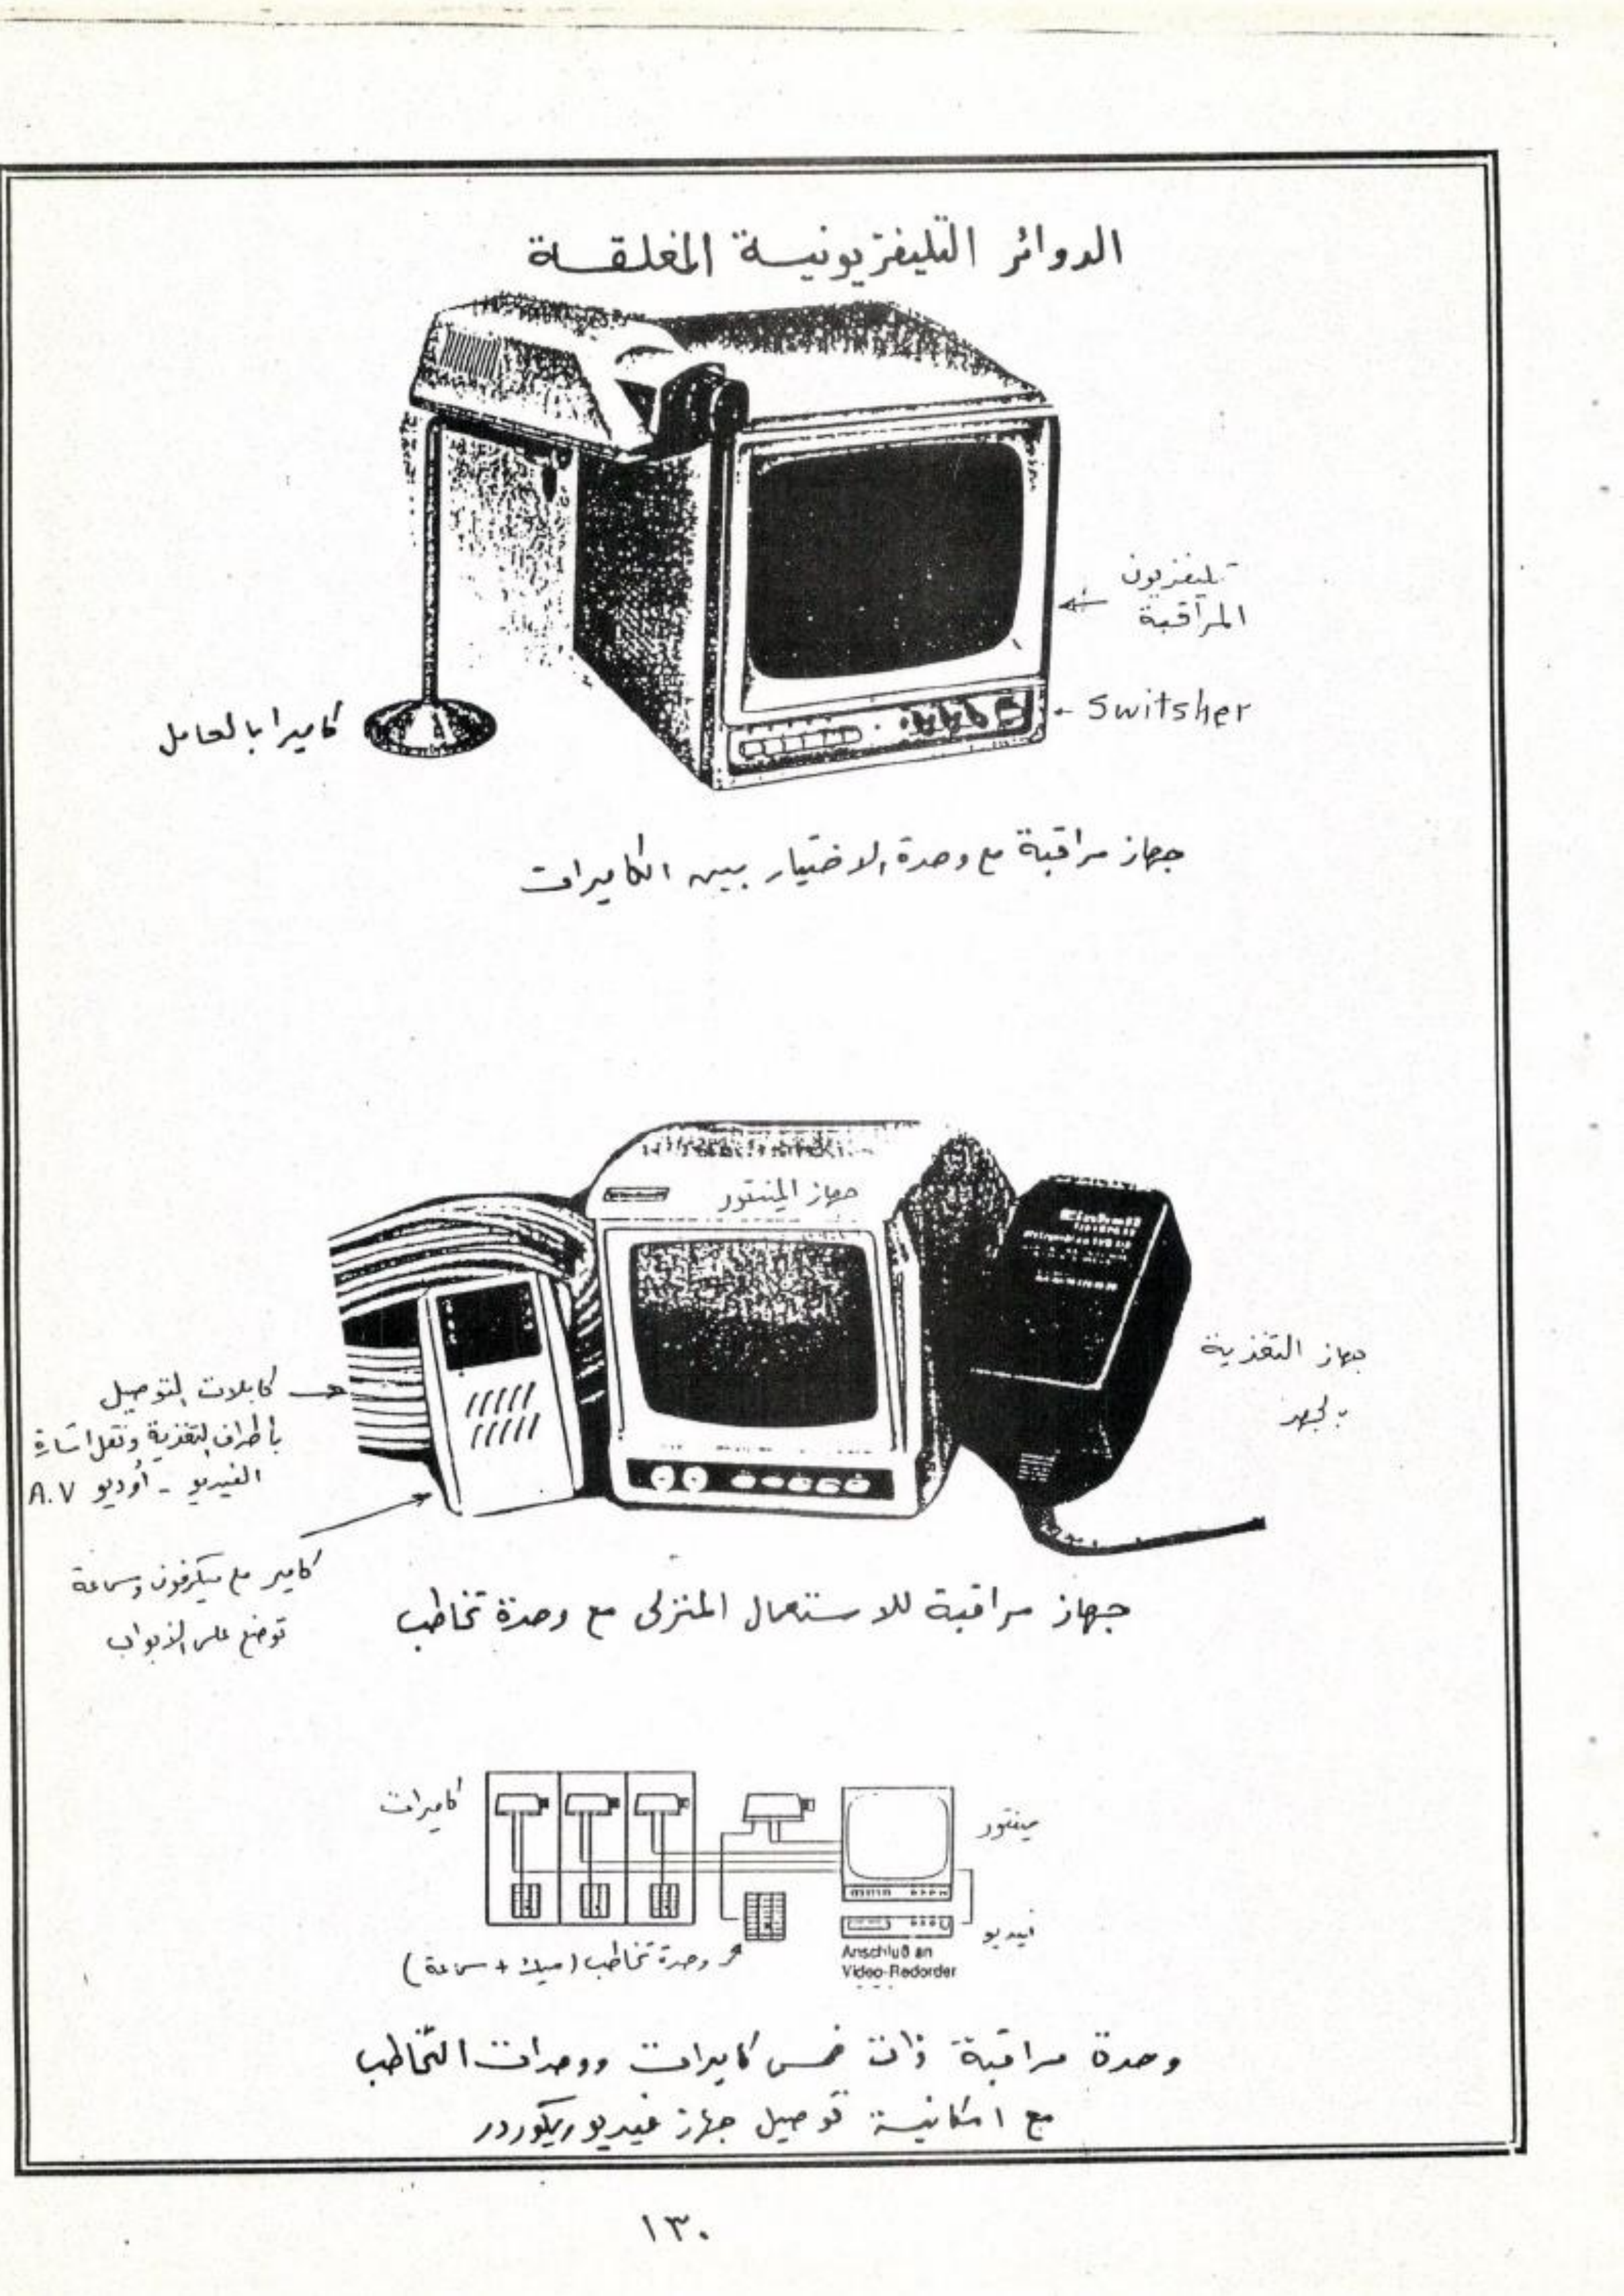 الدوائر التليفزيونية المغلقة
تليفزيون
المراقبة
Switsher
كاميرا بالحامل
جهاز مراقبة مع وحدة الاختيار بين الكاميرات
جهاز المنتور
جهاز التغذية
بالجهد
كابلات التوصيل
بأطراف التغذية ونقل اشارة
الفيديو - أوديو A.V
كامير مع ميكرفون وسماعة
توضع على الابواب
جهاز مراقبة للاستعمال المنزلى مع وحدة تخاطب
كاميرات
مينتور
فيديو
Anschluß an
Video-Redorder
وحدة تخاطب (ميك + سماعة)
وحدة مراقبة ذات خمس كاميرات ووحدات التخاطب
مع امكانية توصيل جهاز فيديو ريكوردر
١٣٠